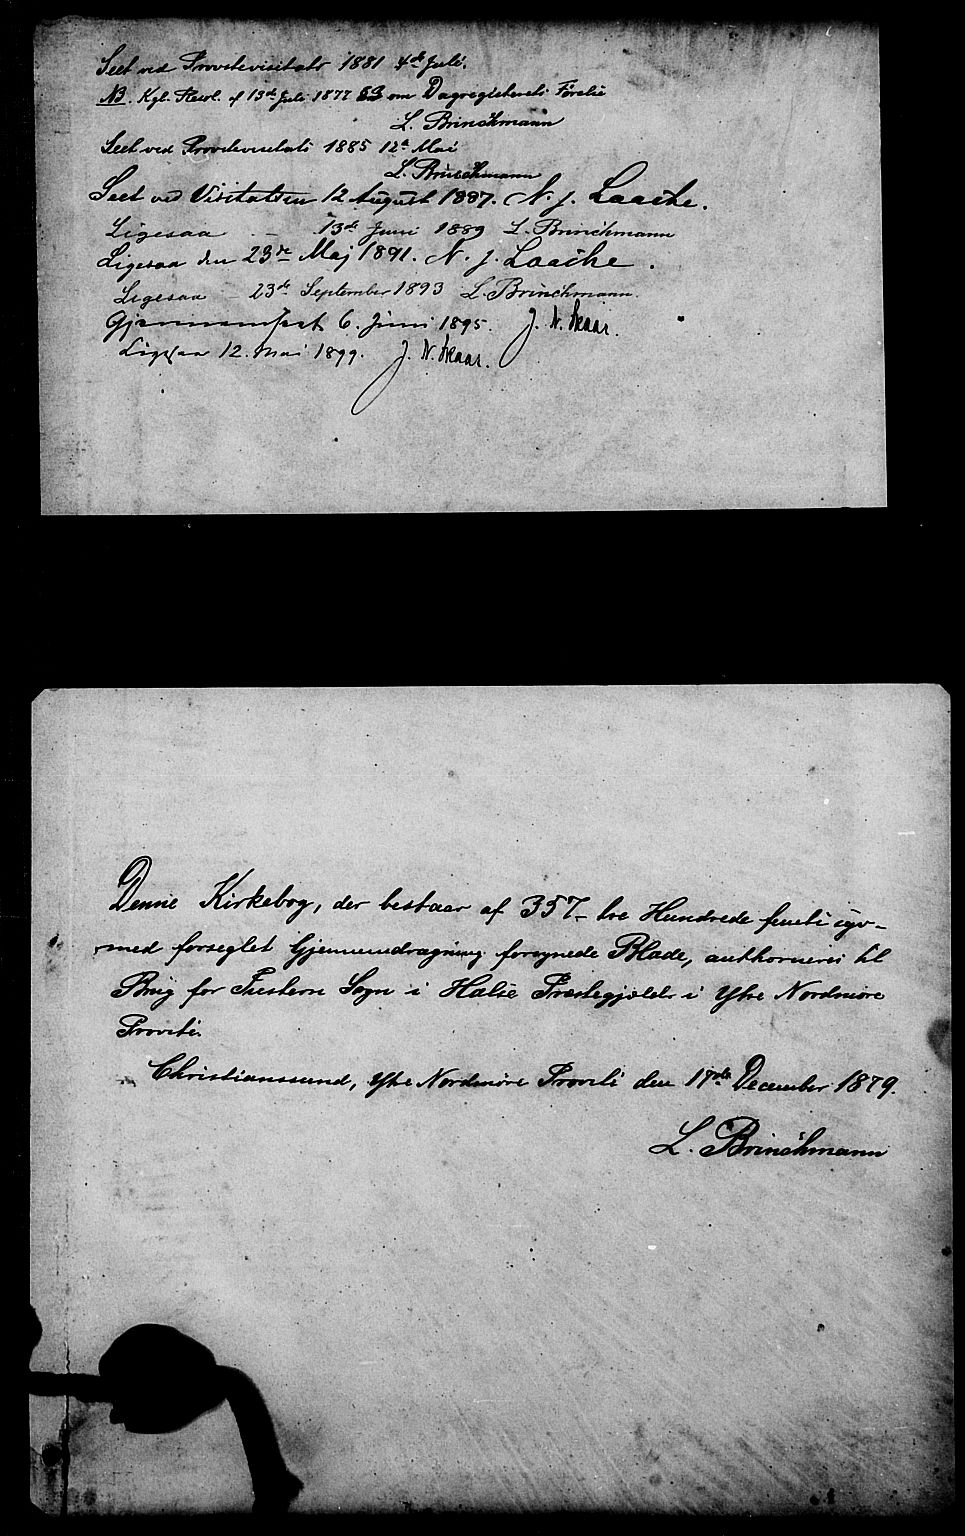 Seet ved Provstevisitats 1881 4de Juli.
NB. Kgl. Resol. af 13de Juli 1877 § 3 om Dagregisterets Førelse
L. Brinchmann
Seet ved Provstevisitats 1885 12te Mai
L. Brinchmann
Seet ved Visitatsen 12 August 1887. N. J. Laache.
Ligesaa – 13de Juni 1889 L. Brinchmann
Ligesaa den 23de Maj 1891. N. J. Laache.
Ligesaa – 23de September 1893 L. Brinchmann.
Gjennemseet 6. Juni 1895. J. N. Skaar.
Ligesaa 12. Mai 1899. J. N. Skaar.
Denne Kirkebog, der bestaar af 357 – tre Hundrede femti syv –
med forseglet Gjennemdragning forsynede Blade, authoriseres til
Brug for Sogn i Halse Præstegjeld i Ytre Nordmøre
Provsti.
Christianssund, Ytre Nordmøre Provsti den 17de December 1879.
L. Brinchmann